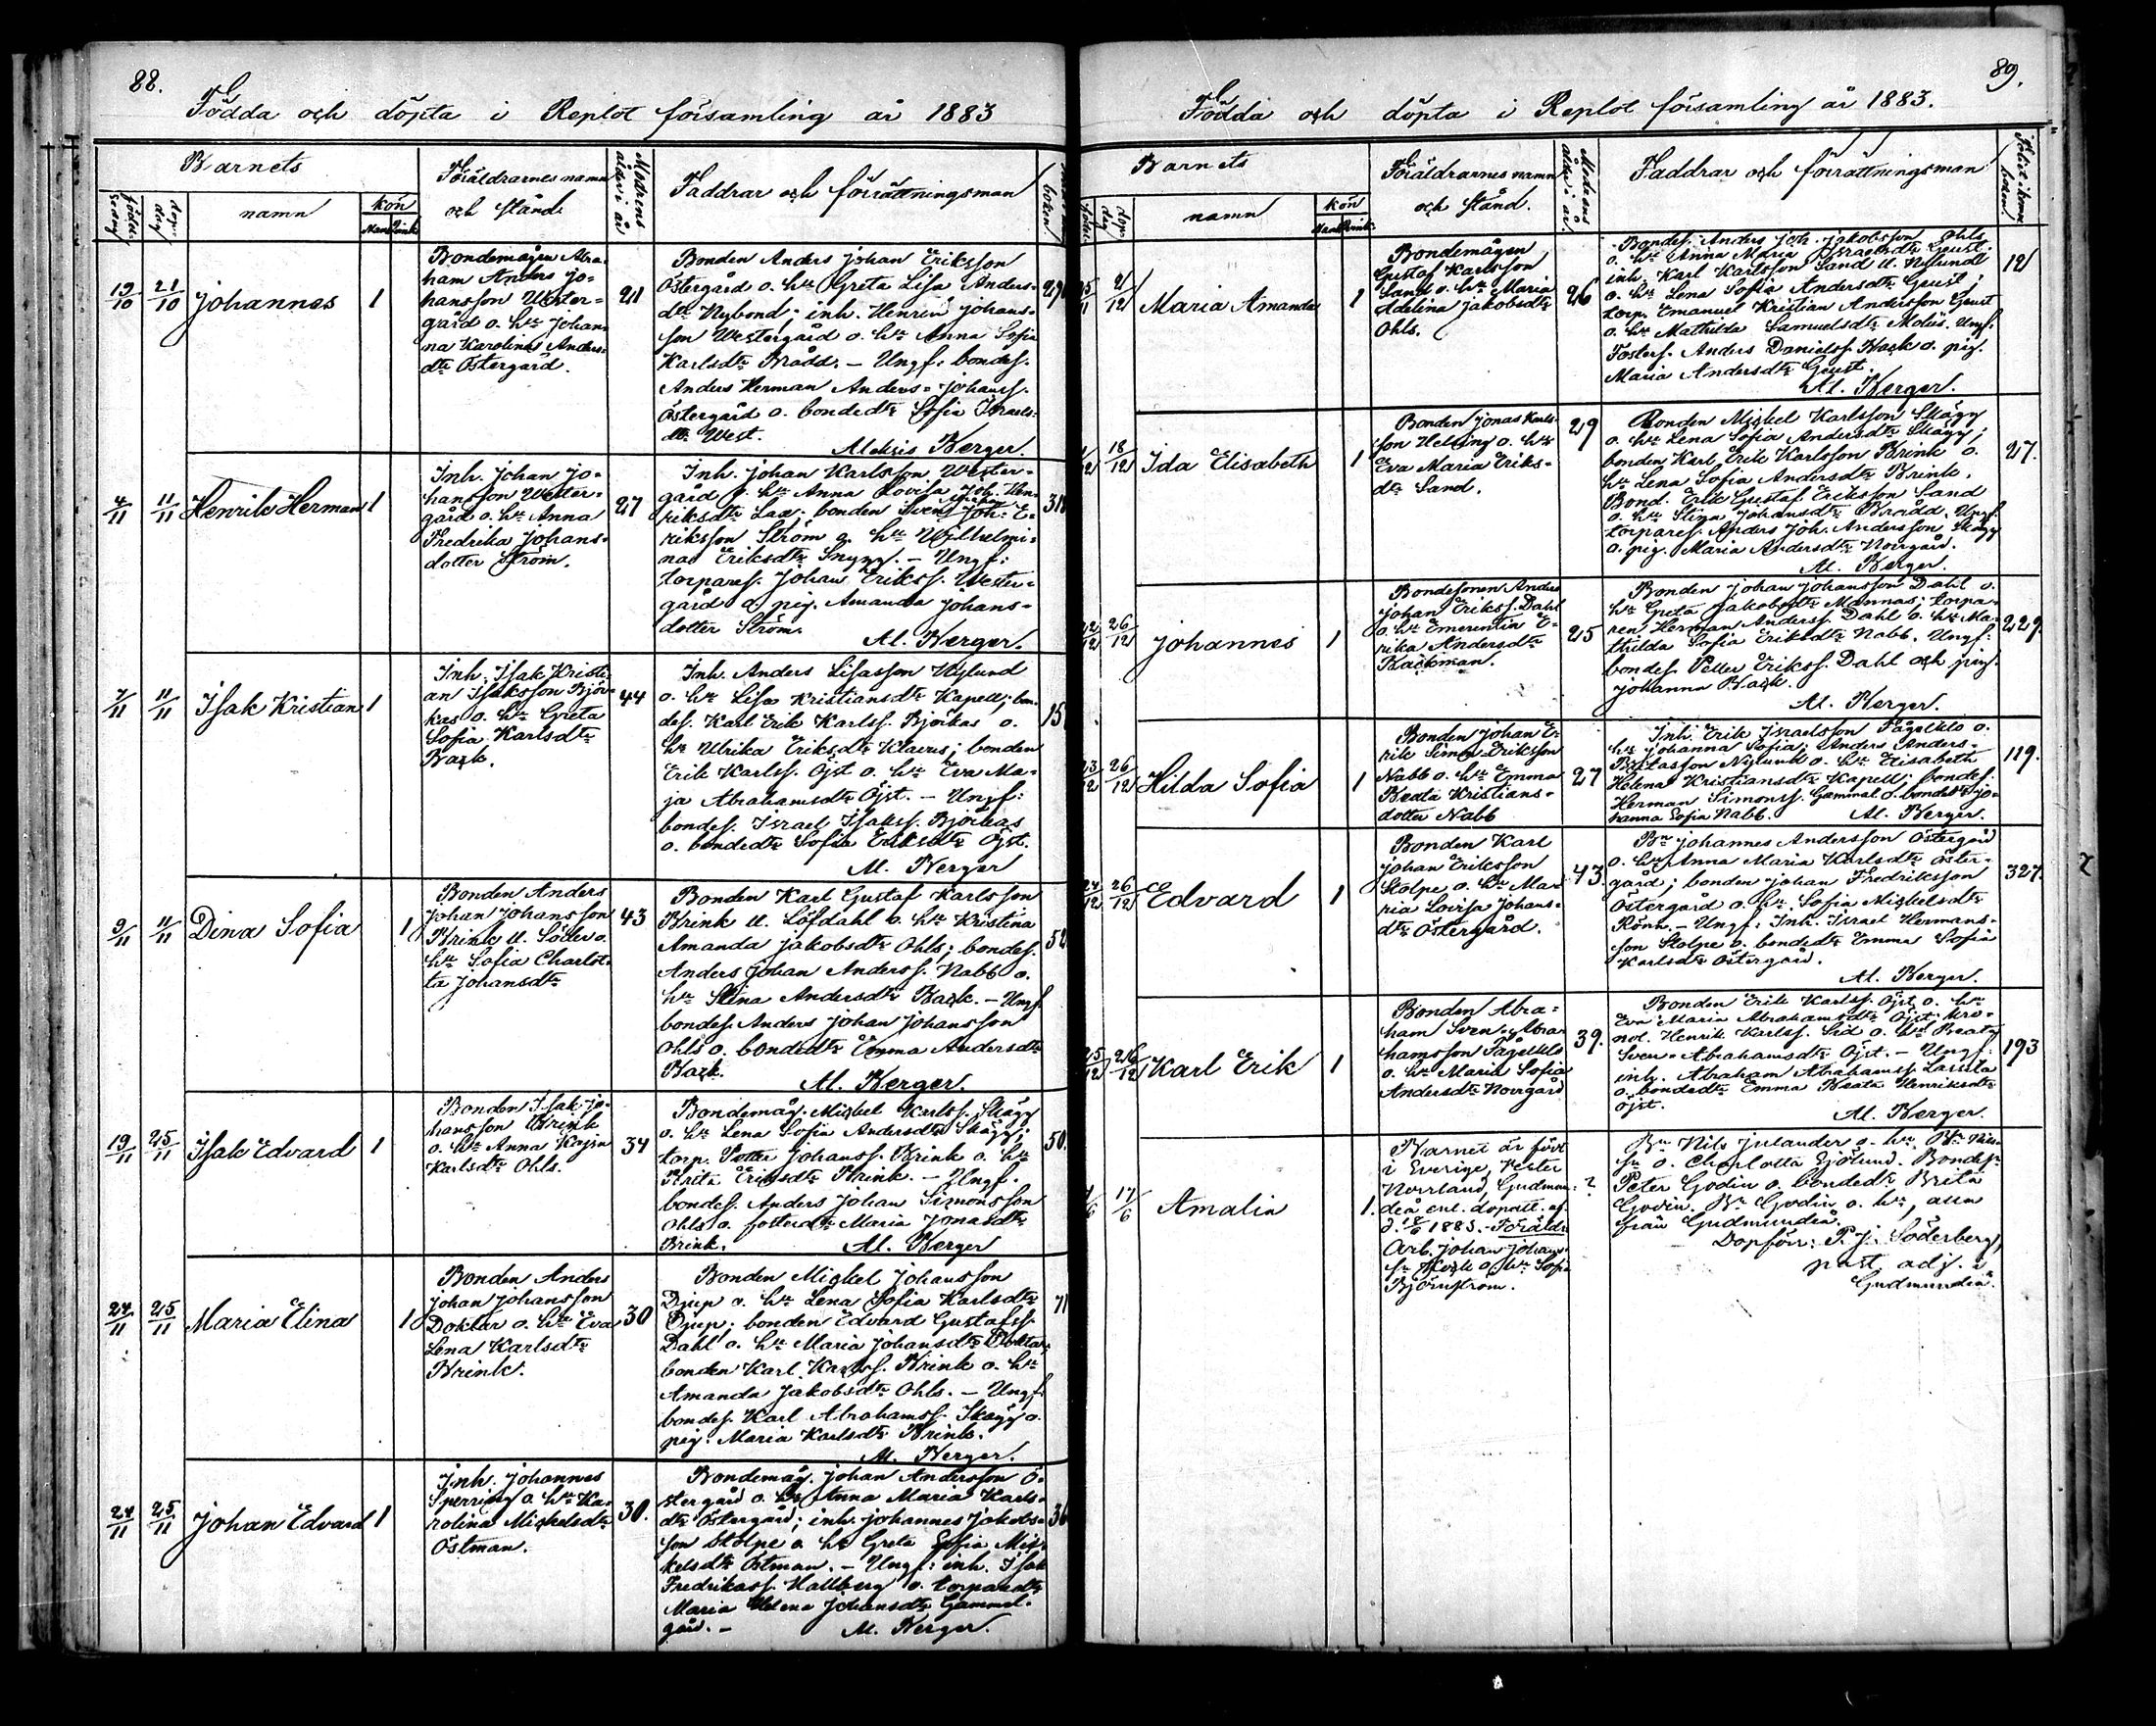 88.
Födda och döpta i Replot församling år 1883
Barnets
namn
kön
Föräldrarnes namn
och stånd
Modrens
ålder i år
Faddrar och förrättningsman
boken
19/10 21/10 Johannes 1
Bondemågen Abra-
ham Anders Jo-
hansson Wester-
gård o. hu Johan-
na Karolina Anders-
dtr Östergård.
21
Bonden Anders Johan Eriksson
Östergård o. hu Greta Lisa Anders-
dtr Nybond; inh. Henrik Johans-
son Westergård o. hu Anna Sofia
Karlsdtr Brådd. – Ungf: bondes.
Anders Herman Anders-Johanss.
Östergård o. bondedtr Sofia Israels-
dtr West.
Aleksis Berger.
4/11 11/11 Henrik Herman 1
Inh. Johan Jo-
hansson Wester-
gård o. hu Anna
Fredrika Johans-
dotter Ström.
27
Inh. Johan Karlsson Wester-
gård o. hu Anna Lovisa Joh. Hen-
riksdtr Lax; bonden Sven Joh: E-
riksson Ström o. hu Wilhelmi-
na Eriksdtr Snygg. – Ungf:
torpares. Johan Erikss. Wester-
gård o. pig. Amanda Johans-
dotter Ström.
Al. Berger.
7/11 11/11 Isak Kristian 1
Inh. Isak Kristi-
an Isaksson Björ-
kas o. hu Greta
Sofia Karlsdtr
Back.
44
Inh. Anders Lisasson Nylund
o. hu Lisa Kristiansdtr Kapell; bon-
des. Karl Erik Karlss. Björkas o.
hu Ulrika Eriksdtr Klavus; bonden
Erik Karlss. Öjst o. hu Eva Ma-
ja Abrahamsdtr Öjst. – Ungf:
bondes. Israel Isakss. Björkas
o. bondedtr Sofia Eriksdtr Öjst.
Al. Berger
9/11 11/11 Dina Sofia 1
Bonden Anders
Johan Johansson
Brink u. Söder o.
hu Sofia Charlot-
ta Johansdtr
43
Bonden Karl Gustaf Karlsson
Brink u. Löfdahl o. hu Kristina
Amanda Jakobsdtr Ohls; bondes.
Anders Johan Anderss. Nabb o.
hu Stina Andersdtr Back. – Ungf.
bondes. Anders Johan Johansson
Ohls o. bondedtr Emma Andersdtr
Back.
Al. Berger.
19/11 25/11 Isak Edvard 1
Bonden Isak Jo-
hansson Brink
o. hu Anna Kajsa
Karlsdtr Ohls.
34
Bondemåg. Mickel Karlss. Skägg
o. hu Lena Sofia Andersdtr Skägg;
torp. Petter Johanss. Brink o. hu
Brita Ericsdtr Brink. – Ungf.
bondes. Anders Johan Simonsson
Ohls o. fosterdtr Maria Jonasdtr
Brink.
50.
Al. Berger
24/11 25/11 Maria Elina 1
Bonden Anders
Johan Johansson
Doktar o. hu Eva
Lena Karlsdtr
Brink.
30
Bonden Mickel Johansson
Djup o. hu Lena Sofia Karlsdtr
Djup; bonden Edvard Gustafss.
Dahl o. hu Maria Johansdtr Doktar;
bonden Karl Karlss. Brink o. hu
Amanda Jakobsdtr Ohls. – Ungf.
bondes. Karl Abrahamss. Skägg o.
pig. Maria Karlsdtr Brink.
Al. Berger.
24/11 25/11 Johan Edvard 1
Inh. Johannes
Sperring o. hu Ka-
rolina Mickelsdtr
Östman.
30.
Bondemåg. Johan Andersson Ö-
stergård o. hu Anna Maria Karls-
dtr Östergård; inh. Johannes Jakobs-
son Stolpe o. hu Greta Sofia Mic-
kelsdtr Östman. – Ungf: inh. Isak
Fredrikass. Hallberg o. torparedtr
Maria Helena Johansdtr Gammel-
gård. –
Al. Berger.
89.
Födda och döpta i Replot församling år 1883.
Barnets
namn
kön
Föräldrarnes namn
och stånd.
Modrens
ålder i år.
Faddrar och förrättningsman
2/12 Maria Amanda 1
Bondemågen
Gustaf Karlsson
Sand o. hu Maria
Adelina Jakobsdtr
Ohls.
26
Bondes. Anders Joh. Jakobsson Ohls
o. hu Anna Maria Israelsdtr Geust;
inh. Karl Karlsson Sand u. Nylund
o. hu Lena Sofia Andersdtr Geust;
torp. Emanuel Kristian Andersson Geust
o. hu Mathilda Samuelsdtr Moliis. Ungf.
Fosters. Anders Danielss. Back o. pig.
Maria Andersdtr Geust.
Al. Berger.
18/12 Ida Elisabeth 1
Bonden Jonas Karls-
son Helsing o. hu
Eva Maria Eriks-
dtr Sand.
29
Bonden Mickel Karlsson Skägg
o. hu Lena Sofia Andersdtr Skägg;
bonden Karl Erik Karlsson Brink o.
hu Lena Sofia Andersdtr Brink.
Bond. Erik Gustaf Eriksson Sand
o. hu Stina Johansdtr Brådd. Ungf.
torpares. Anders Joh. Andersson Skägg
o. pig. Maria Andersdtr Norrgård.
27.
Al. Berger.
22/12 26/12 Johannes 1
Bondesonen Anders
Johan Erikss. Dahl
o. hu Emerentia E-
rika Andersdtr
Backman.
25
Bonden Johan Johansson Dahl o.
hu Greta Jakobsdtr Mannas; torpa-
ren Herman Anderss. Dahl o. hu Ma-
thilda Sofia Eriksdtr Nabb. Ungf:
bondes. Petter Erikss. Dahl och pig.
Johanna Back.
229.
Al. Berger.
23/12 26/12 Hilda Sofia 1
Bonden Johan E-
rik Simon-Eriksson
Nabb o. hu Emma
Beata Kristians-
dotter Nabb
27
Inh. Erik Israelsson Fågelklo o.
hu Johanna Sofia; Anders Anders-
Britasson Nylund o. hu Elisabeth
Helena Kristiansdtr Kapell; bondes.
Herman Simonss. Gammal o. bondedtr Jo-
hanna Sofia Nabb.
119.
Al. Berger.
24/12 26/12 Edvard 1
Bonden Karl
Johan Eriksson
Stolpe o. hu Ma-
ria Lovisa Johans-
dtr Östergård.
43.
Bn Johannes Andersson Östergård
o. hu Anna Maria Karlsdtr Öster-
gård; bonden Johan Fredriksson
Östergård o. hu Sofia Mickelsdtr
Rönn. – Ungf: Inh. Israel Hermans-
son Stolpe o. bondedtr Emma Sofia
Karlsdtr Östergård.
327.
Al. Berger.
25/12 26/12 Karl Erik 1
Bonden Abra-
ham Sven-Abra-
hamsson Fågelklo
o. hu Maria Sofia
Andersdtr Norrgård
39.
Bonden Erik Karlss. Öjst o. hu
Eva Maria Abrahamsdtr Öjst; kro-
not. Henrik Karlss. Sid o. hu Beata
Sven-Abrahamsdtr Öjst. – Ungf:
inh. Abraham Abrahamss. Lassila
o. bondedtr Emma Beata Henriksdtr
Öjst.
193
Al. Berger.
17/6 Amalia 1.
Barnet är födt
i Sverige, Vester
Norrland, Gudmun-
deå enl. dopatt. af
1883. – Föräldr:
Arb. Johan Johans-
sn o. hu Sofia
Björnström.
?
Bn Nils Julander o. hu, Bn Nils
o. Charlotta Sjölund. Bondesn
Peter Godin o. bondedtr Brita
Godin. Bn Godin o. hu, alla
från Gudmundeå.
Dopförr: P. J. Söderberg,
past. adj. i
Gudmundeå.